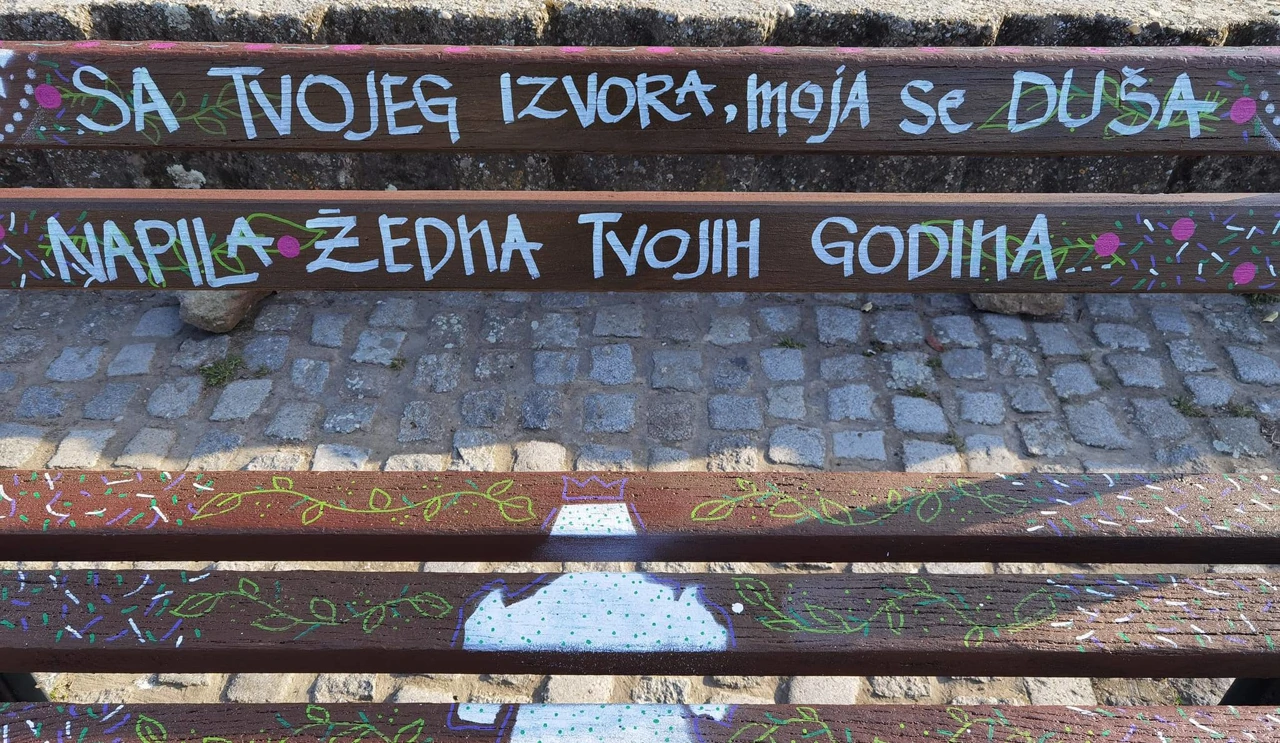 SA TVOJEG IZVORA, mojA Se DUŠA
NAPILA ŽEDNA TVOJIH GODINA...